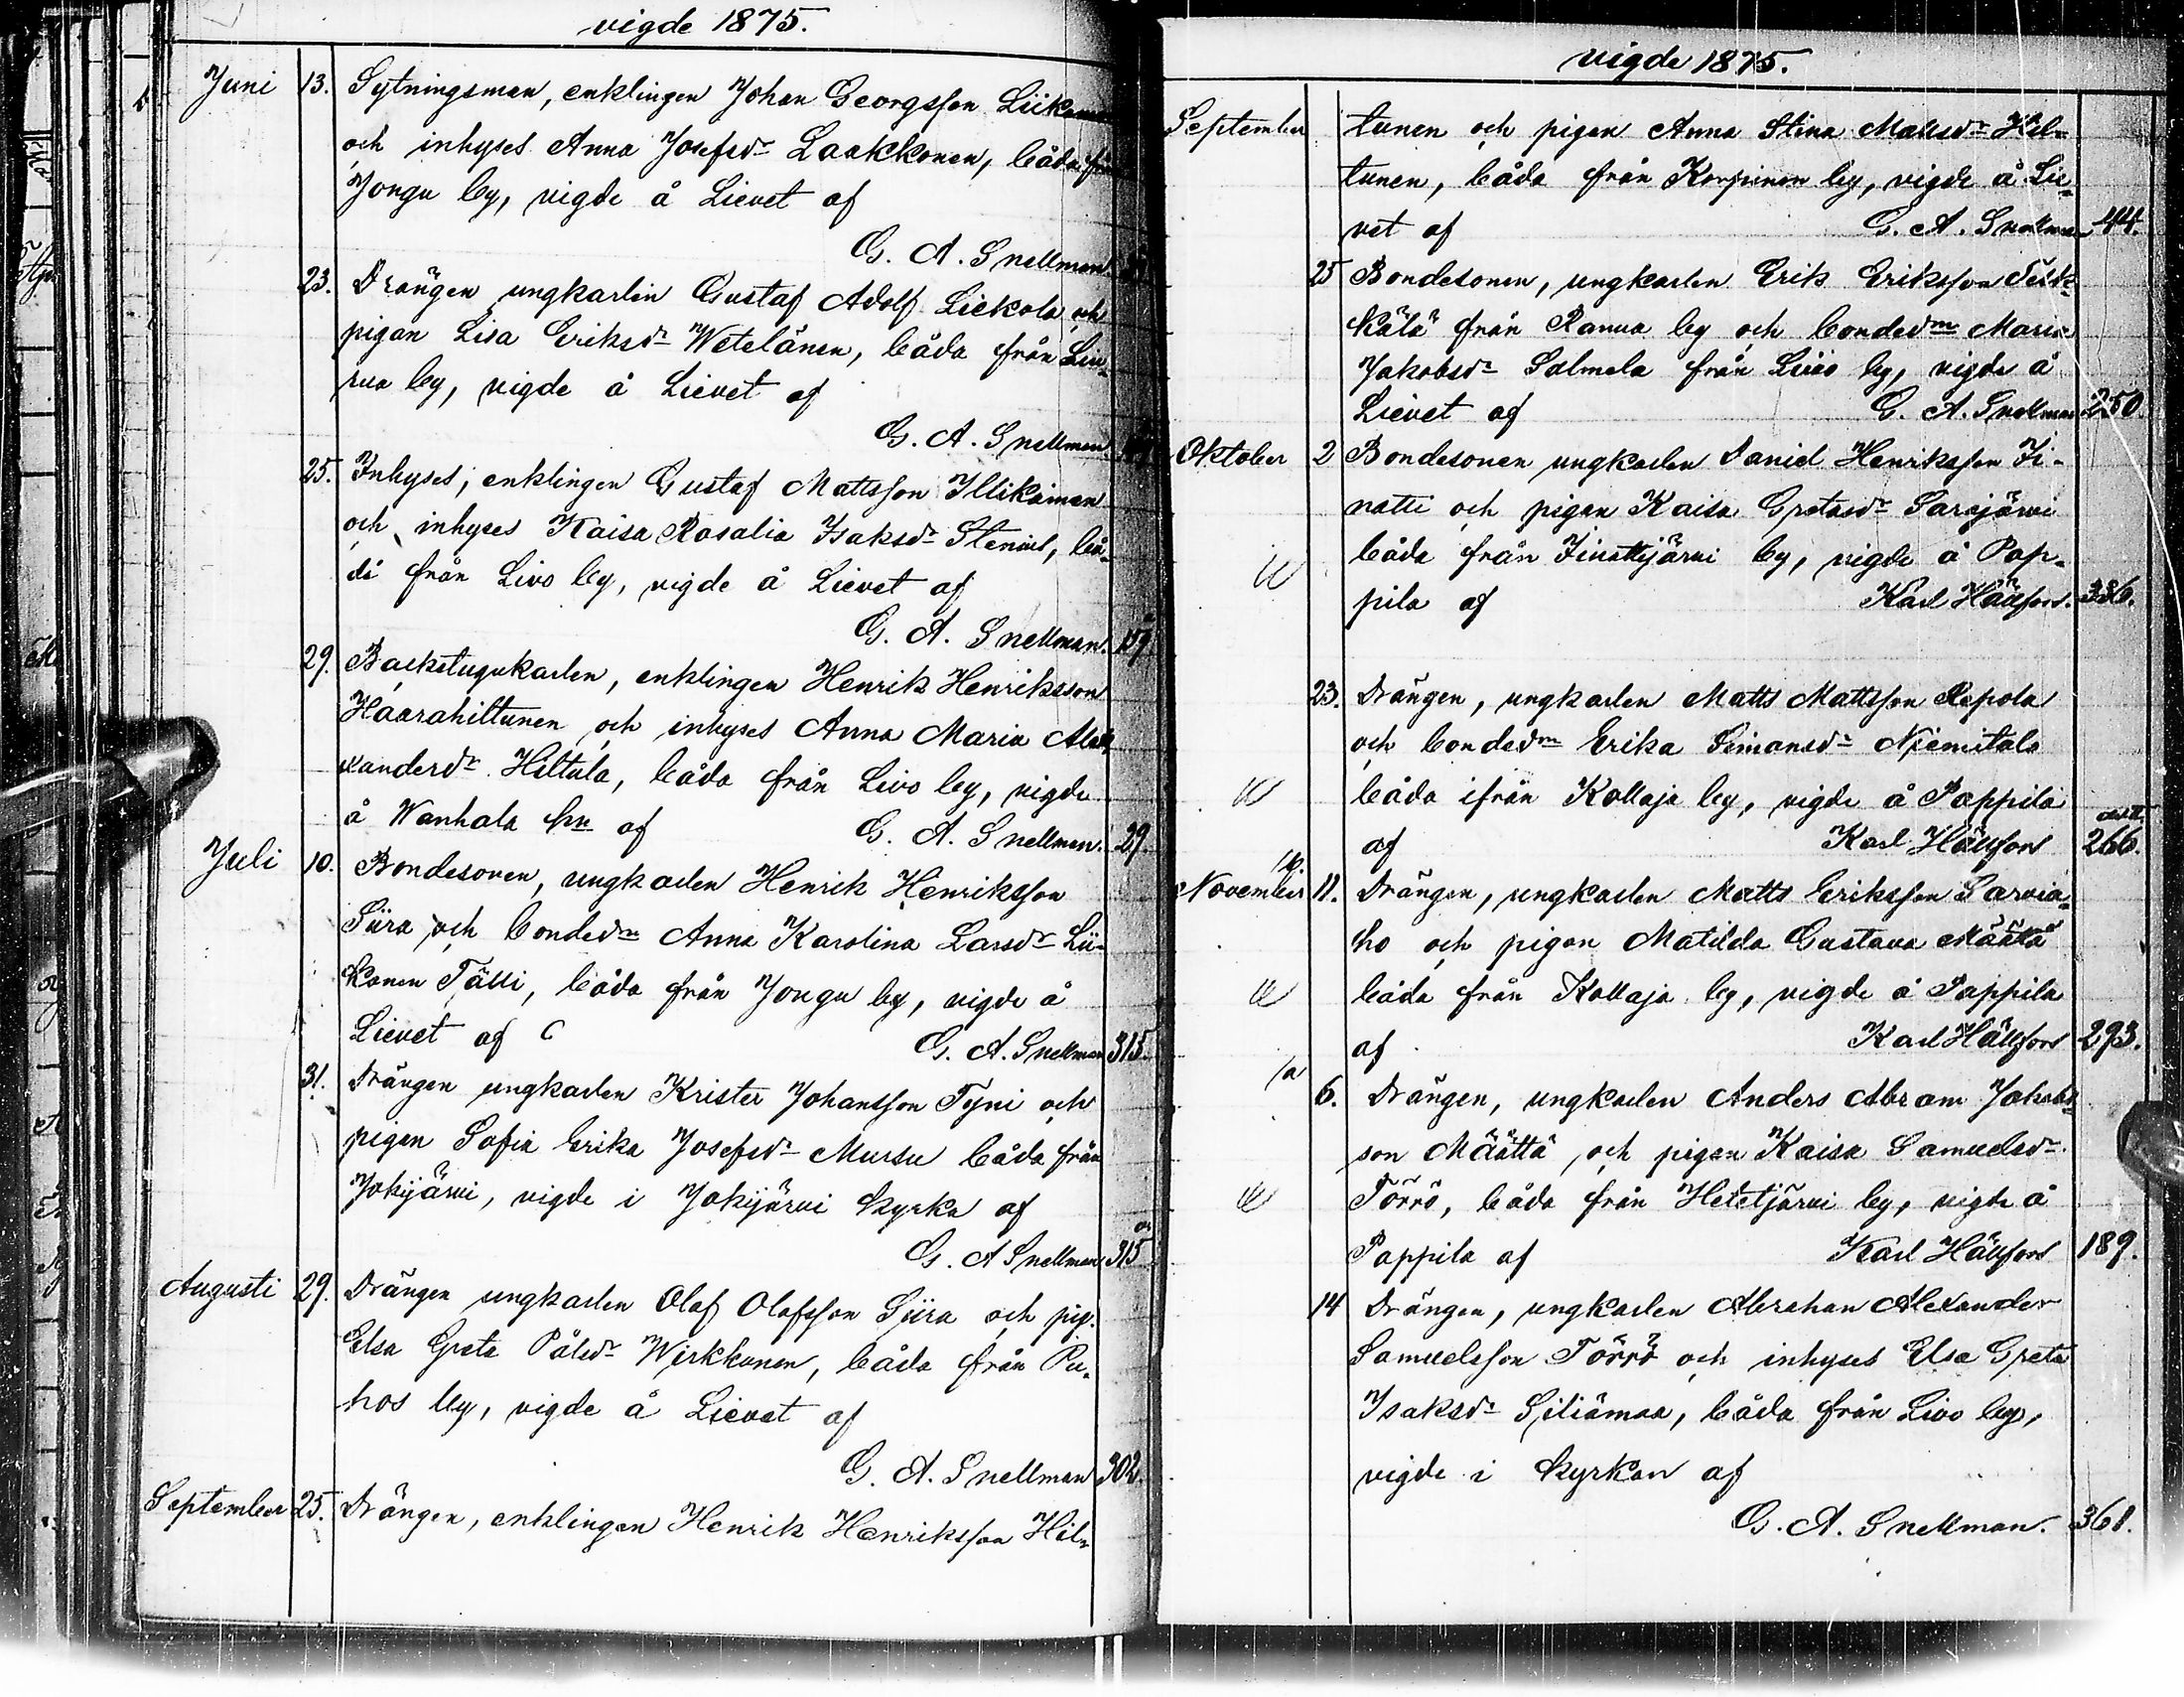 vigde 1875.
Juni 13. Sytningsman, enklingen Johan Georgsson Liikanen
och inhyses Anna Josefsdr Laakkonen, båda från
Jongu by, vigde å Lievet af
G. A. Snellman.
23. Drängen ungkarlen Gustaf Adolf Liekola och
pigan Lisa Eriksdr Wetelänen, båda från
rua by, vigde å Lievet af
G. A. Snellman.
25. Inhyses, enklingen Gustaf Mattsson Illikainen
och inhyses Kaisa Rosalia Isaksdr Stenius, bå-
da från Livo by, vigde å Lievet af
G. A. Snellman. 159
29. Backstugukarlen, enklingen Henrik Henriksson
Haarahiltunen och inhyses Anna Maria Alek-
xandersdr Hiltula, båda från Livo by, vigde
å Wanhala hn af G. A. Snellman. 29.
Juli 10. Bondesonen, ungkarlen Henrik Henriksson
Siira och bondedn Anna Karolina Larsdr Lii-
kanen Tälli, båda från Jongu by, vigde å
Lievet af G. A. Snellman 315.
31. Drängen ungkarlen Krister Johansson Tyni och
pigan Sofia Erika Josefsdr Mursu båda från
Jokijärvi, vigde i Jokijärvi kyrka af
G. A Snellman 315
Augusti 29. Drängen ungkarlen Olof Olofsson Siira och pig.
Elsa Greta Pålsdr Wirkkunen, båda från Pu-
hos by, vigde å Lievet af
G. A. Snellman 302.
September 25. Drängen, enklingen Henrik Henriksson Hil-
vigde 1875.
September tunen och pigan Anna Stina Mattsdr Hil-
tunen, båda från Korpinen by, vigde å Lie-
vet af G. A. Snellman 44.
25 Bondesonen, ungkarlen Erik Eriksson
kälä från Ranua by och bondedn Maria
Jakobsdr Salmela från Livo by, vigde å
Lievet af G. A. Snellman 250.
Oktober 2 Bondesonen ungkarlen Daniel Henriksson Ji-
natti och pigan Kaisa Gretasdr Sarajärvi
båda från Jinattijärvi by, vigde å Pap-
pila af Karl Hällfors. 336.
23. Drängen, ungkarlen Matts Mattsson Repola
och bondedn Erika Simonsdr Niemitalo
båda ifrån Kollaja by, vigde å Pappila
af Karl Hällfors 266.
November 11. Drängen, ungkarlen Matts Eriksson Sarvia-
ho och pigan Matilda Gustava Määttä
båda från Kollaja by, vigde å Pappila
af Karl Hällfors 293.
6. Drängen, ungkarlen Anders Abram Jakobs-
son Määttä och pigan Kaisa Samuelsdr
Törrö, båda från Hetetjärvi by, vigde å
Pappila af Karl Hällfors 189.
14 Drängen, ungkarlen Abraham Alexander
Samuelsson Törrö och inhyses Elsa Greta
Isaksdr Siliämaa, båda från Livo by,
vigde i kyrkan af
G. A. Snellman. 361.